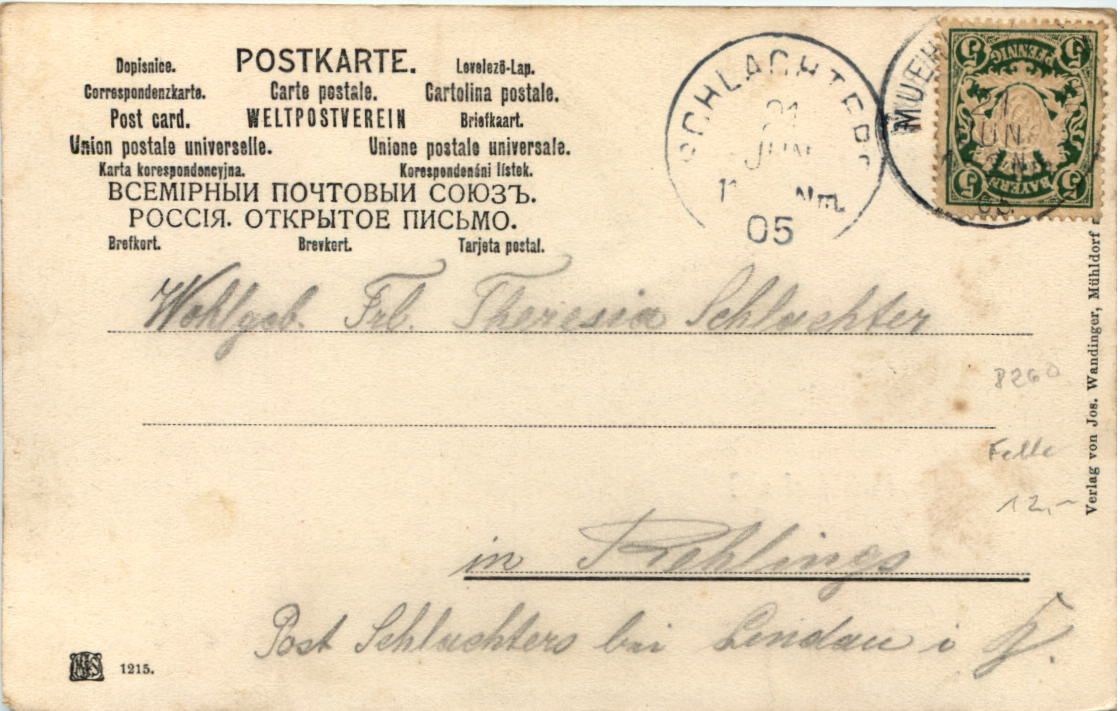 POSTKARTE.
Dopisnice. Levelező-Lap.
Correspondenzkarte. Carte postale. Cartolina postale.
Post card. WELTPOSTVEREIN Briefkaart.
Union postale universelle. Unione postale universale.
Karta korespondencyjna. Korespondenční lístek.
ВСЕМІРНЫЙ ПОЧТОВЫЙ СОЮЗЪ.
РОССІЯ. ОТКРЫТОЕ ПИСЬМО.
Brefkort. Brevkort. Tarjeta postal.
SCHLACHTERS
21
JUN
11 Nm.
05
MUEH
21
JUN
05
5 5
PFENNIG
BAYERN
5 5
Wohlgeb. Frl. Theresia Schlachter
in Rehlings
Post Schlachters bei Lindau i
8260
Felle
12,-
Verlag von Jos. Wandinger, Mühldorf
1215.